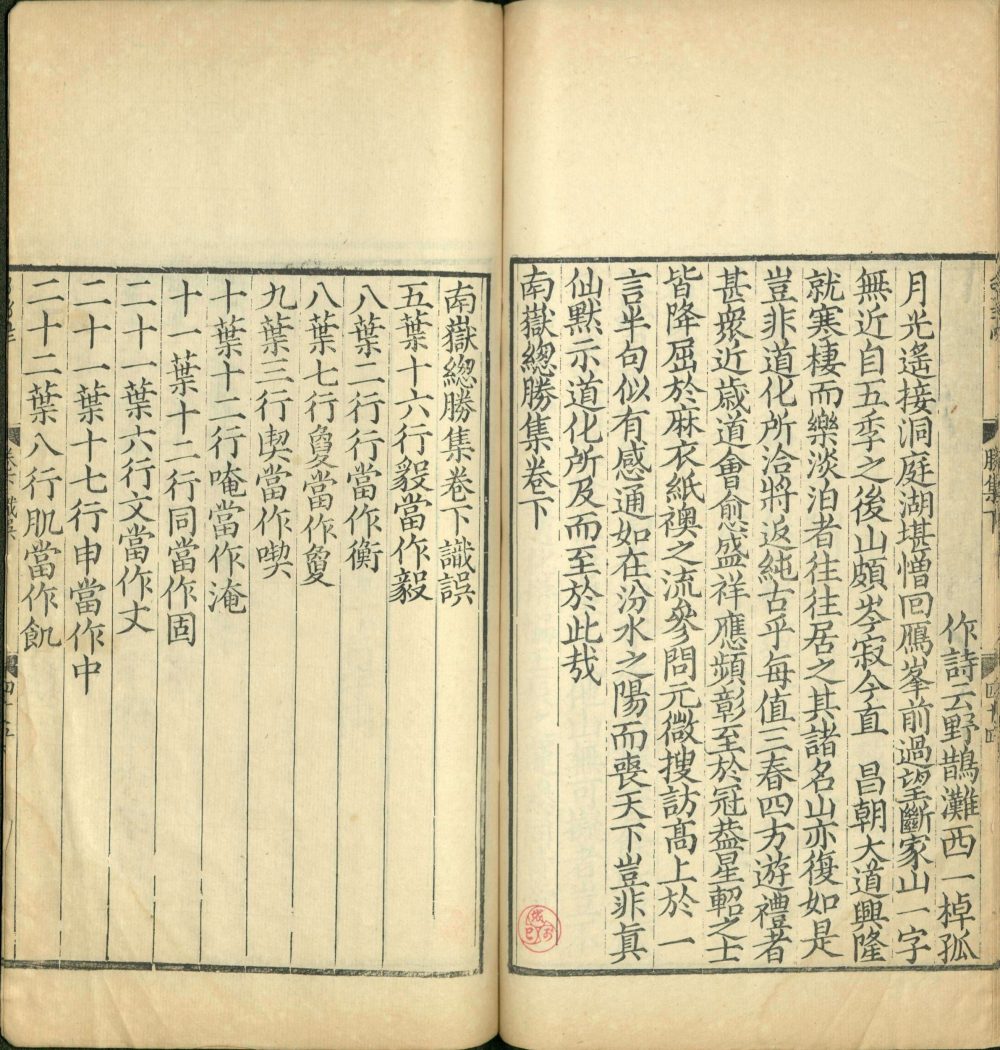 作詩云野鵲灘西一棹孤
月光遙接洞庭湖堪憎回鴈峯前過望斷家山一字
無近自五季之後山頗岑寂今直　昌朝大道興隆
就寒棲而樂淡泊者往往居之其諸名山亦復如是
豈非道化所洽將返純古乎每值三春四方遊禮者
甚衆近歲道會愈盛祥應頻彰至於冠葢星軺之士
皆降屈於麻衣紙襖之流參問元微搜訪高上於一
言半句似有感通如在汾水之陽而喪天下豈非眞
仙默示道化所及而至於此哉
南嶽總勝集卷下
南嶽總勝集卷下識誤
五葉十六行毅當作毅
八葉二行行當作衡
八葉七行夐當作夐
九葉三行㓞當作喫
十葉十二行唵當作淹
十一葉十二行同當作固
二十一葉六行文當作丈
二十一葉十七行申當作中
二十二葉八行肌當作飢